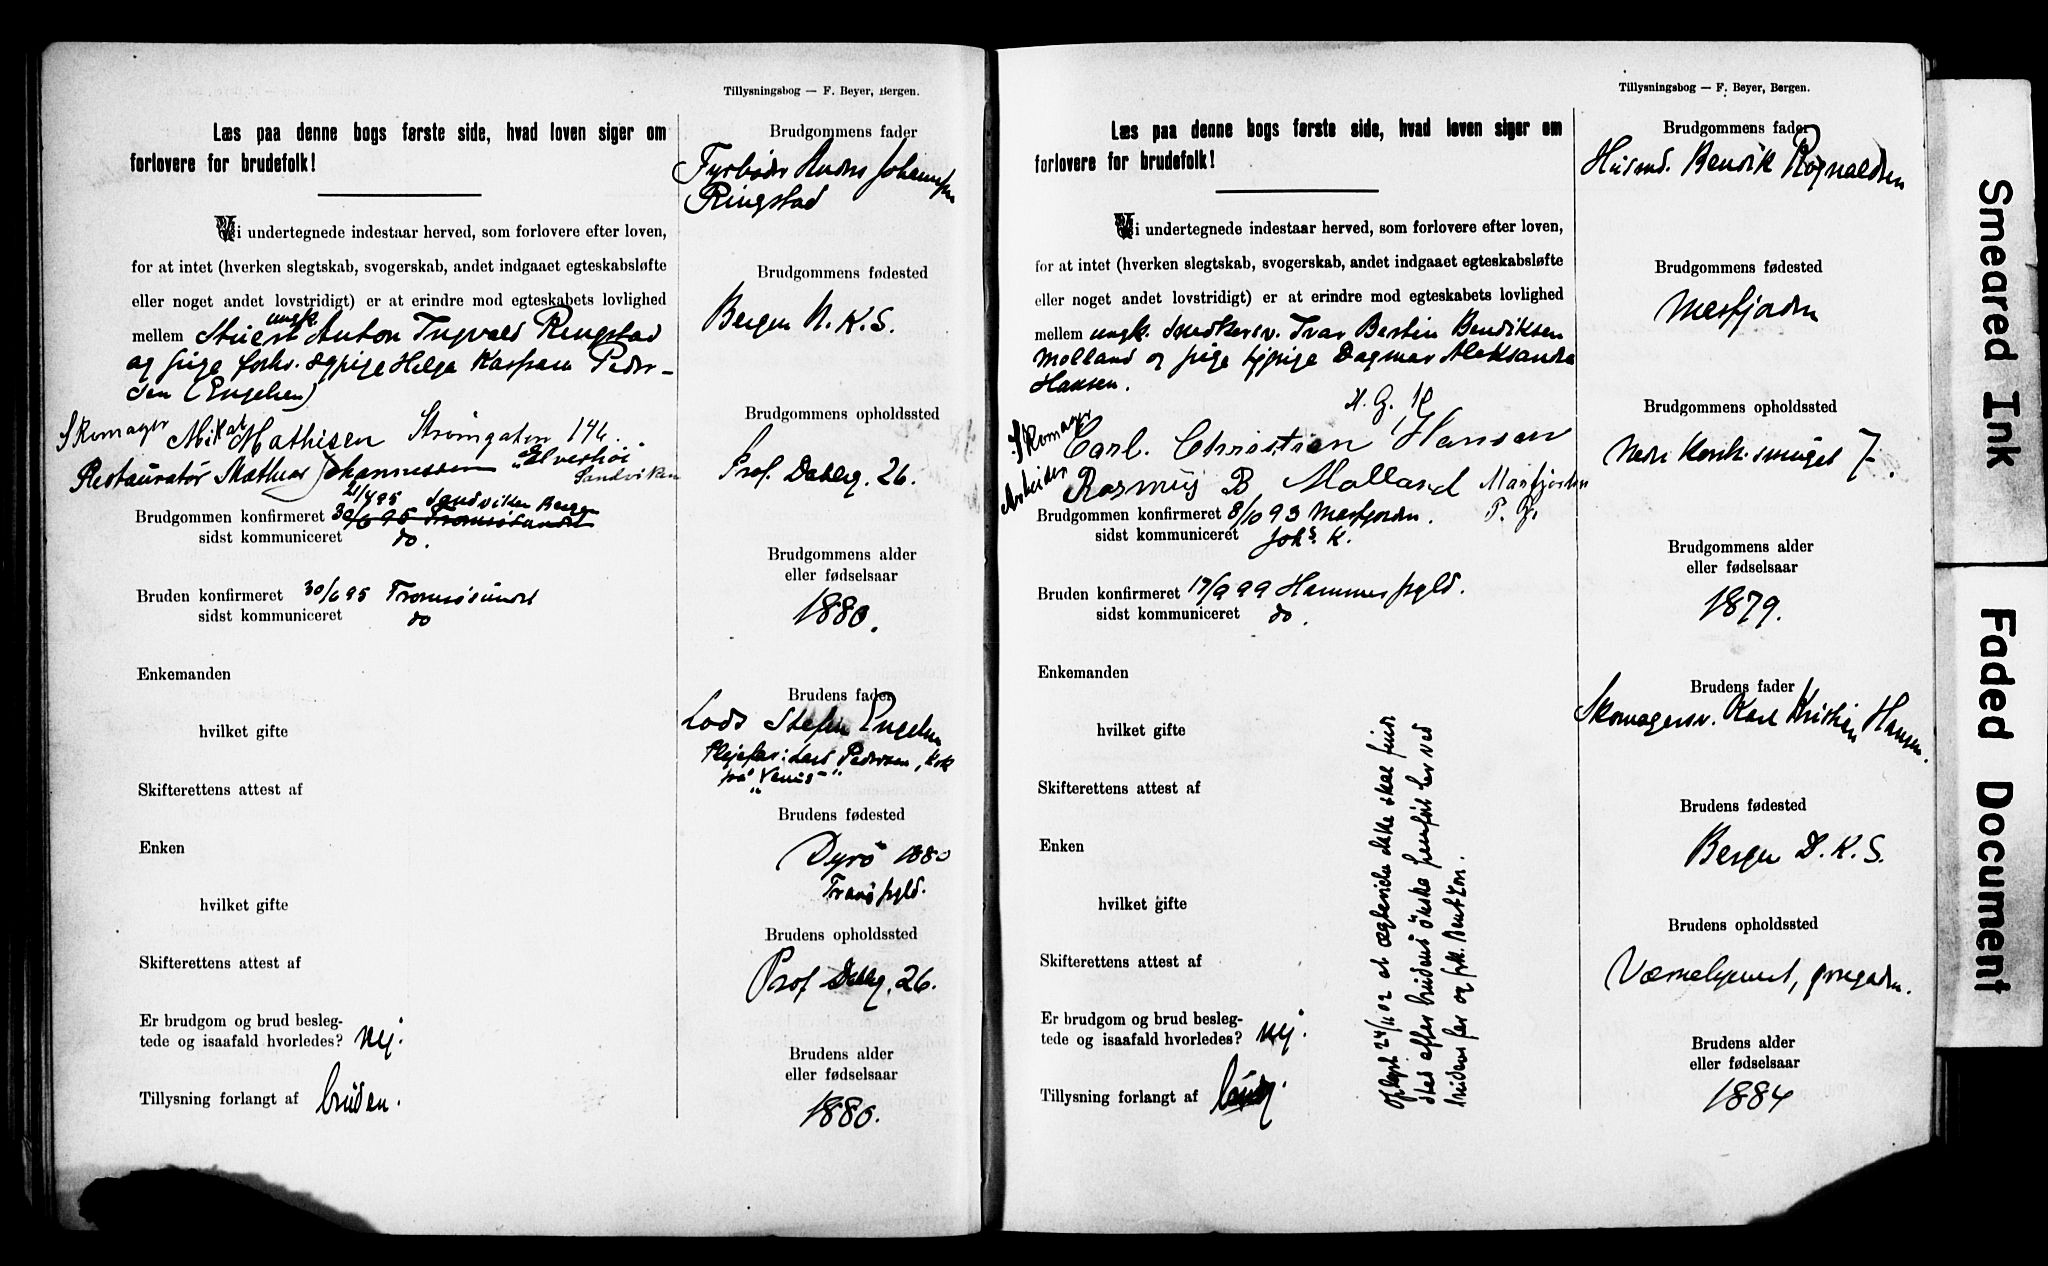 Tillysningsbog — F. Beyer, Bergen.
Læs paa denne bogs første side, hvad loven siger om
forlovere for brudefolk!
Vi undertegnede indestaar herved, som forlovere efter loven,
for at intet (hverken slegtskab, svogerskab, andet indgaaet egteskabsløfte
eller noget andet lovstridigt) er at erindre mod egteskabets lovlighed
ungk.
mellem Stuert Anton Ingvald Ringstad
og pige forhv. Helga Kaspara Peder-
sen (Engelsen)
Skomager Mikal Mathisen Strømgaten 146.
Restauratør Mathias Johannessen Elveshøi
Sandviken
21/4 95 Sandviken Bergen
Brudgommen konfirmeret 30/6 95 Tromsøsundet
sidst kommuniceret do.
Bruden konfirmeret 30/6 95 Tromsøsundet
sidst kommuniceret do
Enkemanden
hvilket gifte
Skifterettens attest af
Enken
hvilket gifte
Skifterettens attest af
Er brudgom og brud besleg-
tede og isaafald hvorledes? nej.
Tillysning forlangt af bruden.
Brudgommens fader
Fyrbøder Anders Johannessen
Ringstad
Brudgommens fødested
Bergen N. K. S.
Brudgommens opholdssted
Prof. Dahlsg. 26.
Brudgommens alder
eller fødselsaar
1880.
Brudens fader
Lods Steffen Engelsen
Plejefar: Lars Pedersen, kok
paa "Venus"
Brudens fødested
Dyrø 1880
Tranø pgld.
Brudens opholdssted
Prof Dahlsg. 26.
Brudens alder
eller fødselsaar
1880.
Tillysningsbog — F. Beyer, Bergen.
Læs paa denne bogs første side, hvad loven siger om
forlovere for brudefolk!
Vi undertegnede indestaar herved, som forlovere efter loven,
for at intet (hverken slegtskab, svogerskab, andet indgaaet egteskabsløfte
eller noget andet lovstridigt) er at erindre mod egteskabets lovlighed
mellem ungk. snedkersv. Ivar Bertin Bendiksen
Molland og pige tjpige Dagmar Aleksandra
Hansen.
Skomager Carl Christian Hansen
Arbeider Rasmus B Molland Masfjorden
Brudgommen konfirmeret 8/10 93 Masfjorden. P. G.
sidst kommuniceret Johs. K.
Bruden konfirmeret 17/9 99 Hammer pgld.
sidst kommuniceret do.
Enkemanden
hvilket gifte
Skifterettens attest af
Enken
hvilket gifte
Skifterettens attest af
Er brudgom og brud besleg-
tede og isaafald hvorledes? nej.
Tillysning forlangt af
Oplyst 24/11 02 at ægtevielse ikke skal finde
sted efter brudens ønske fremført her ved
brudens far og frk. Bentzon.
Brudgommens fader
Husmd. Bendik Rognaldsen
Brudgommens fødested
Masfjorden
Brudgommens opholdssted
Nedre Korsk.smuget 7.
Brudgommens alder
eller fødselsaar
1879.
Brudens fader
Skomagersv. Karl Kristian Hansen.
Brudens fødested
Bergen D. K. S.
Brudens opholdssted
Værnehjemmet,
Brudens alder
eller fødselsaar
1884
Smeared Ink
Faded Document